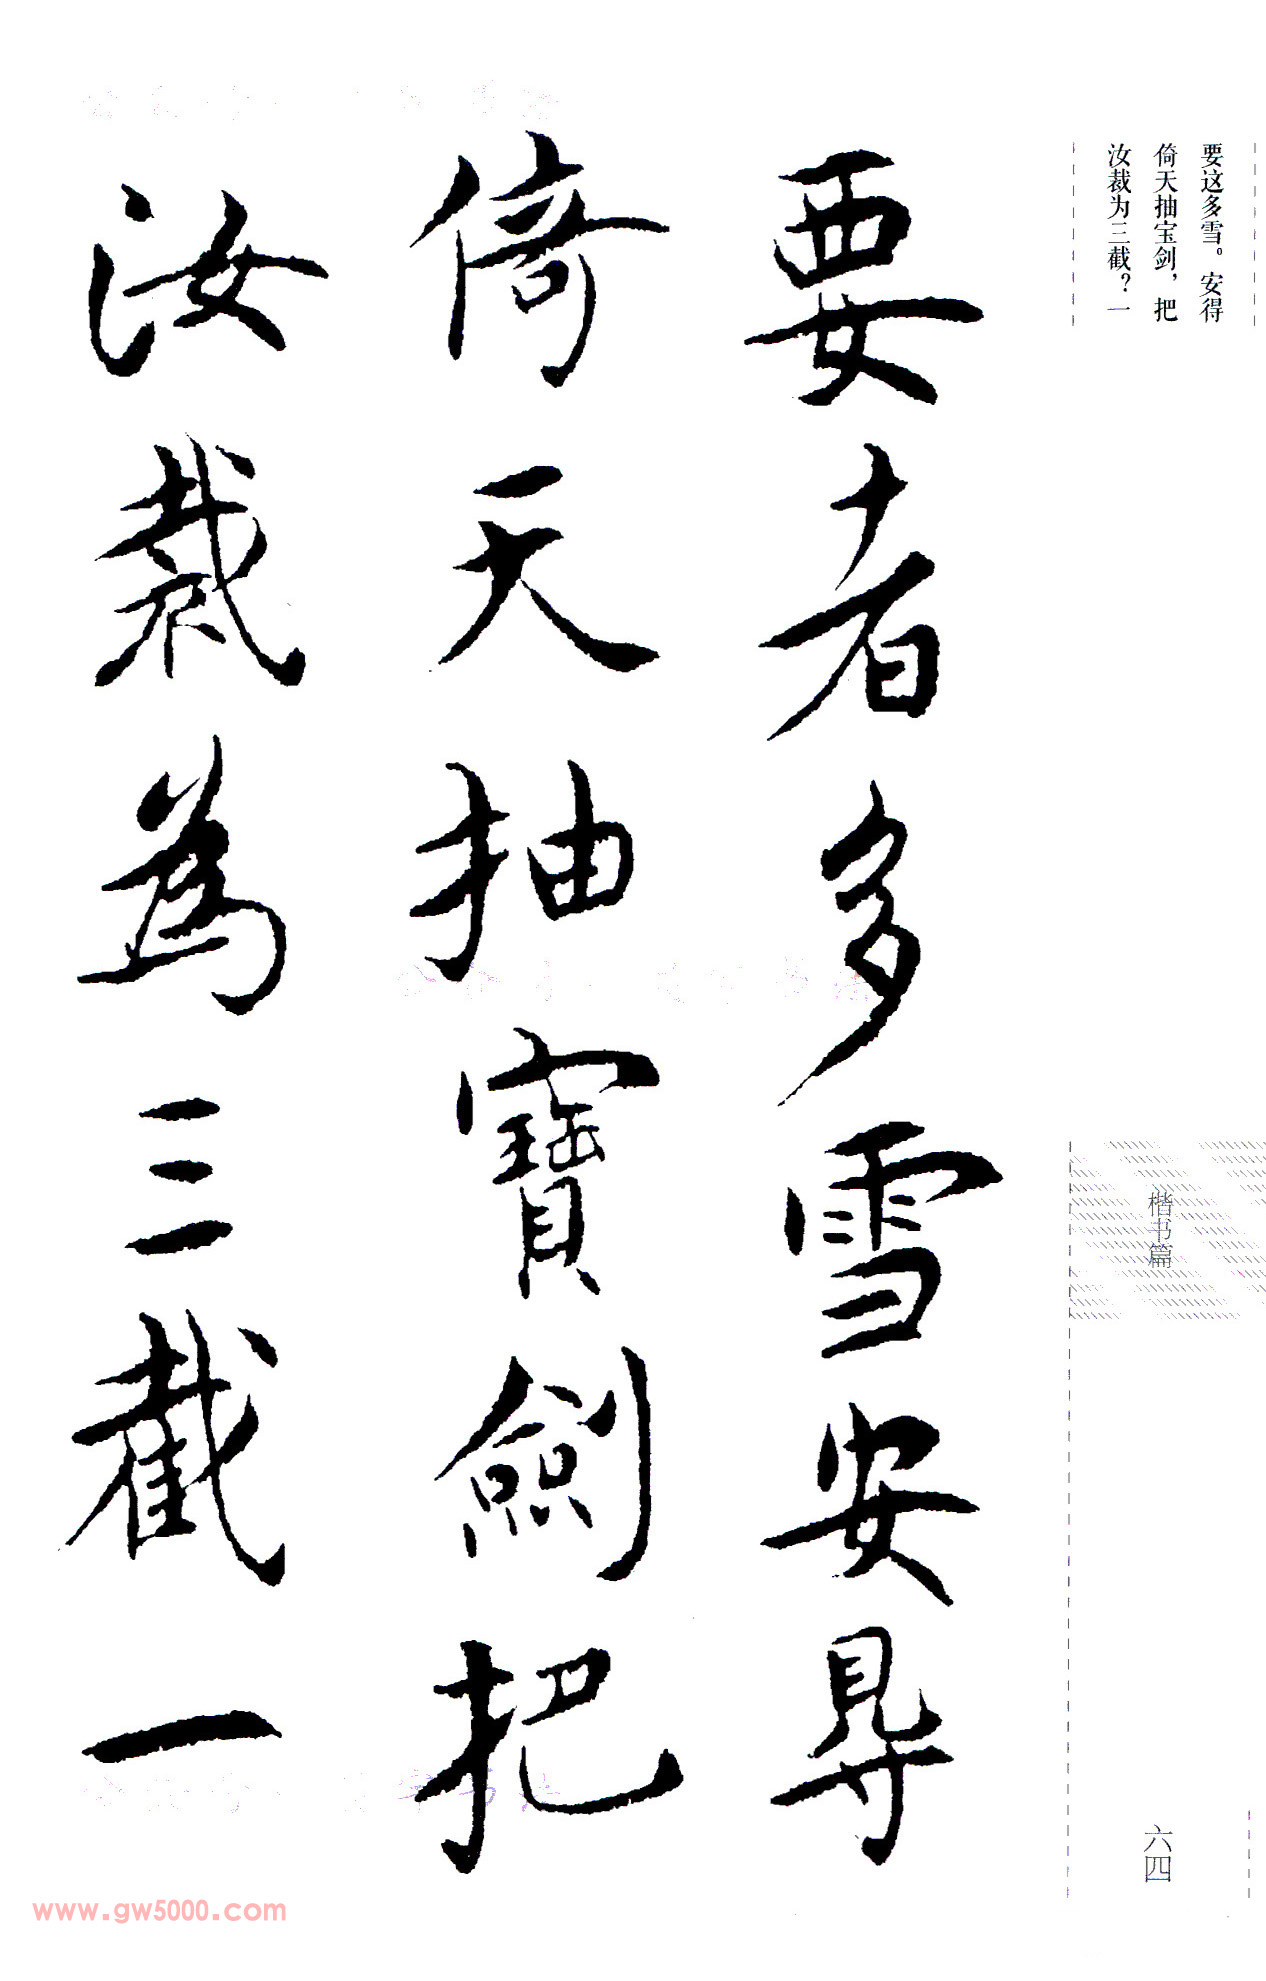 要这多雪。安得
倚天抽宝剑，把
汝裁为三截？一
要者多雪安㝵
倚天抽寶劍把
汝裁為三截一
楷书篇
六四
www.gw5000.com